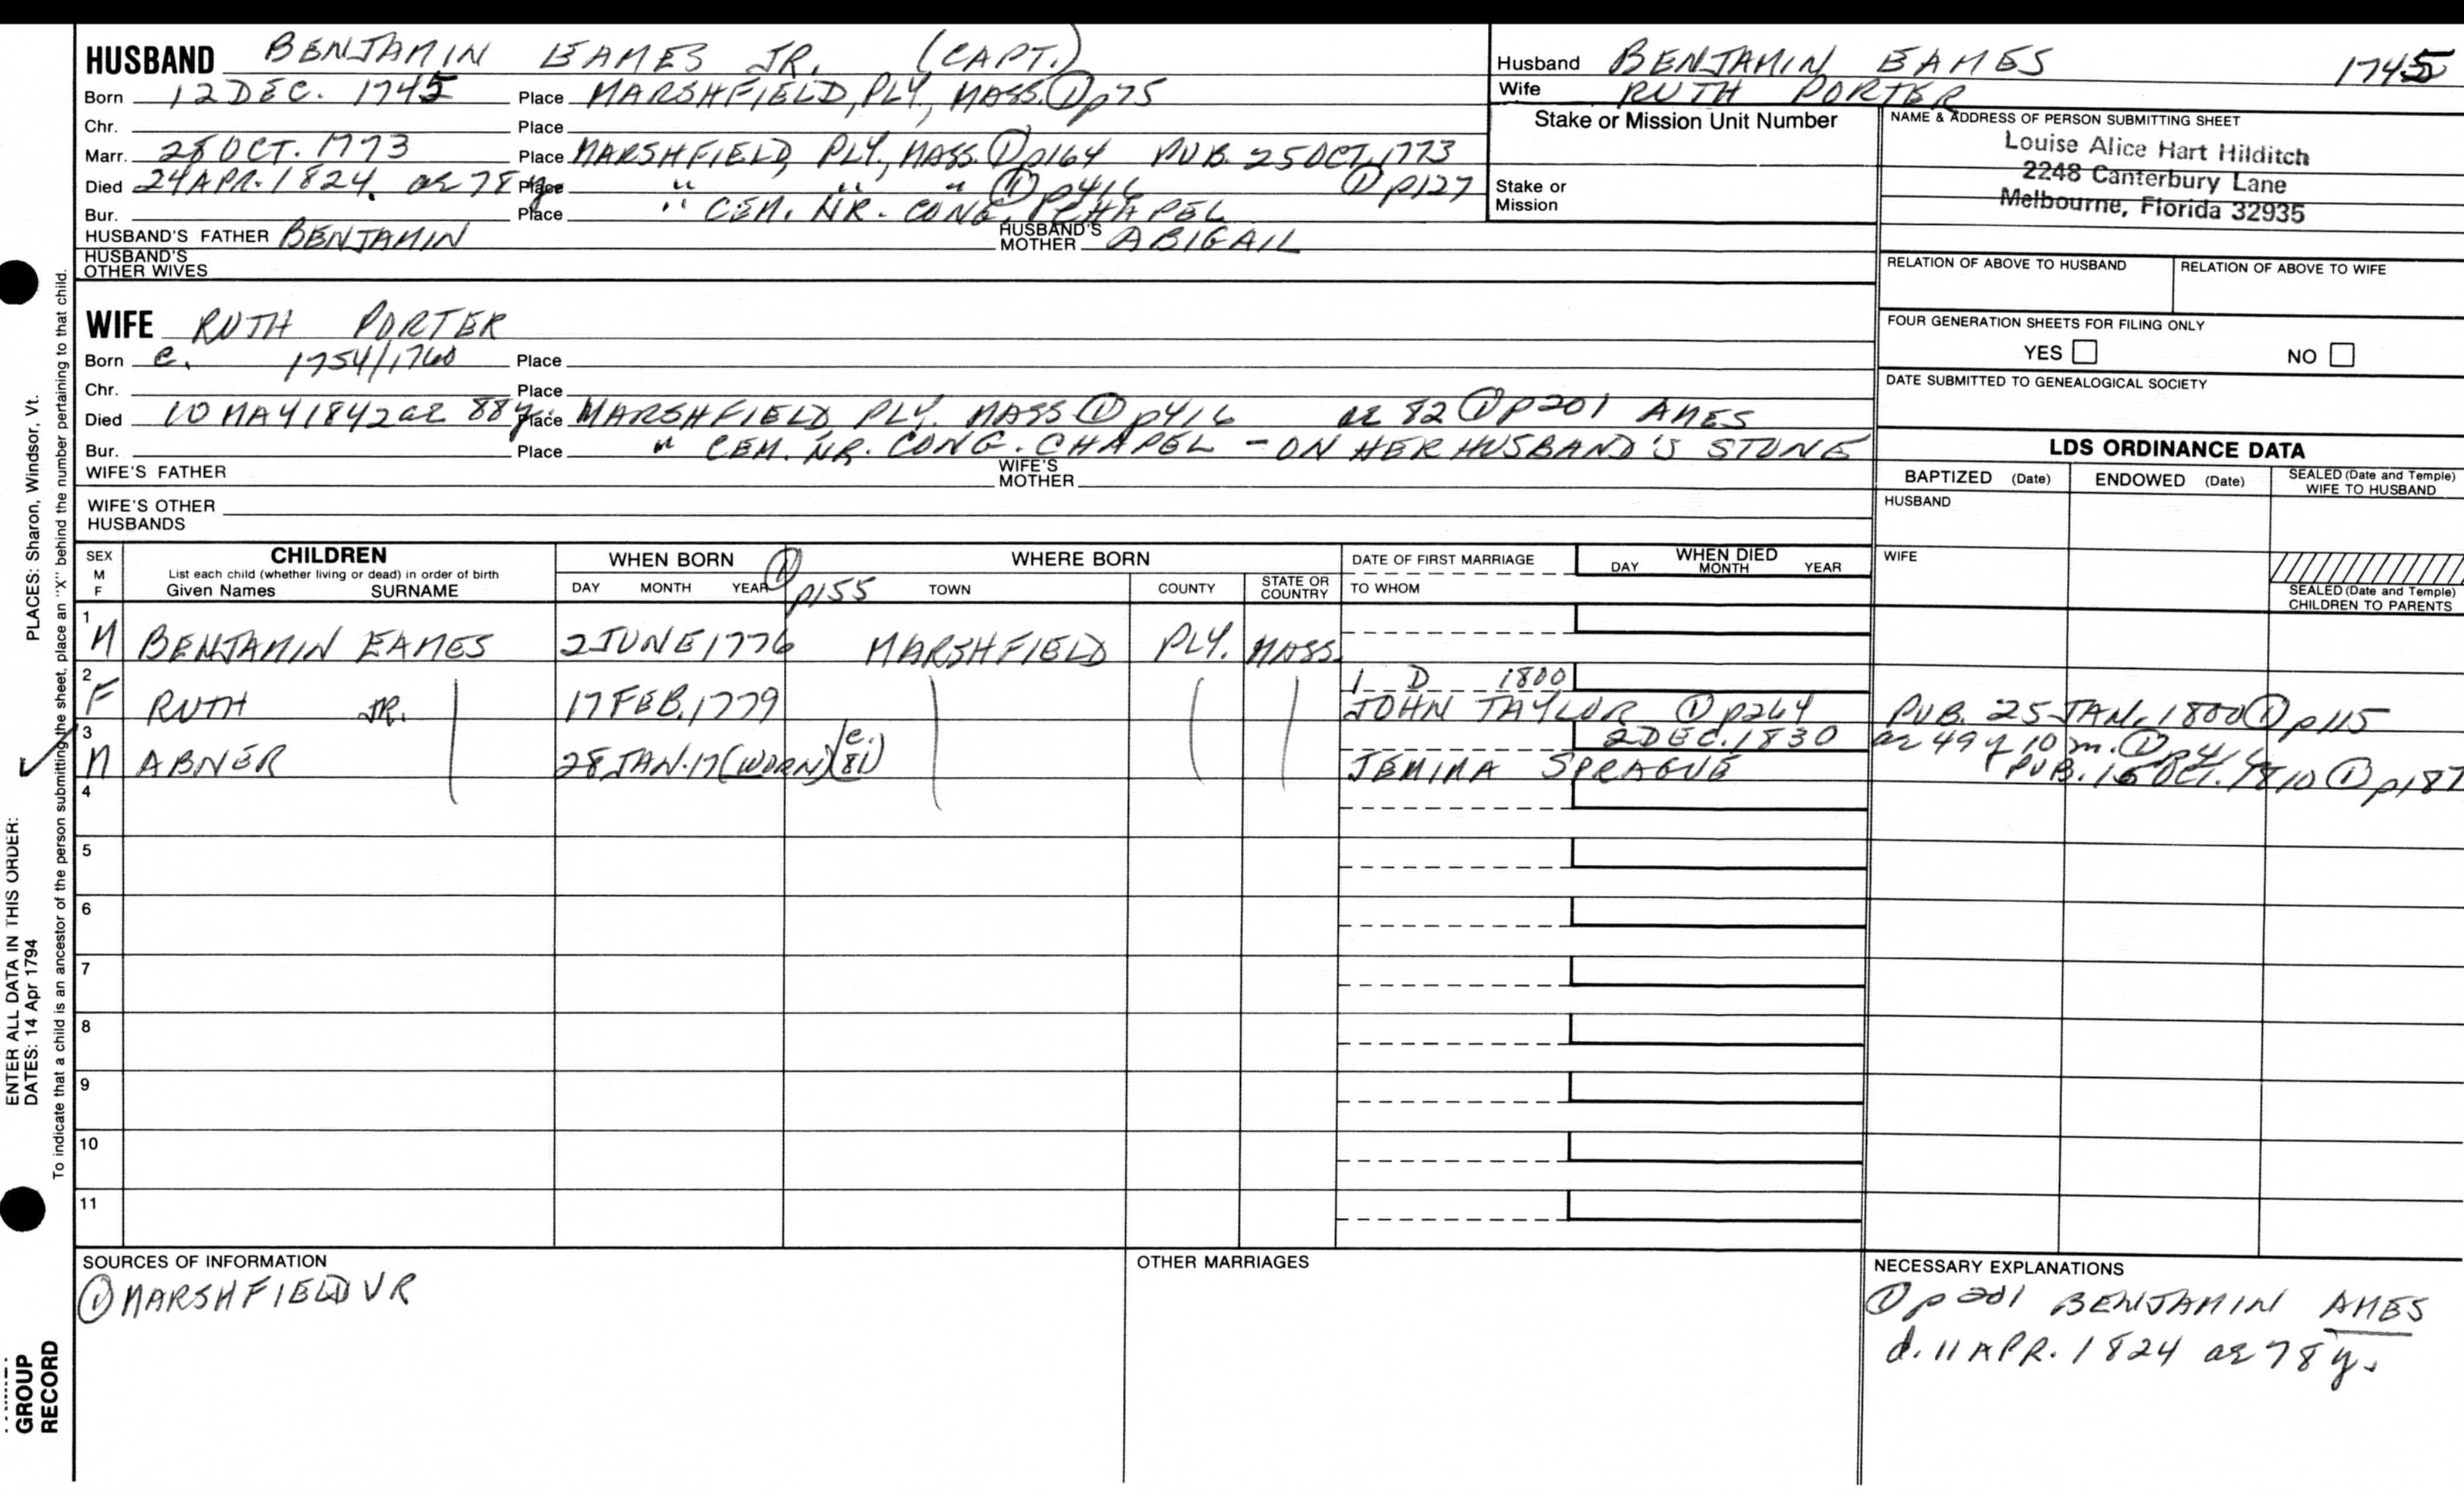 HUSBAND BENJAMIN EAMES JR. (CAPT.)
Born 12 DEC. 1745 Place MARSHFIELD, PLY., MASS. ① p75
Chr. Place
Marr. 28 OCT. 1773 Place MARSHFIELD, PLY., MASS. ① p164 PUB. 25 OCT. 1773
Died 24 APR. 1824. ae 78 y. Place " " " ① p416 ① p127
Bur. Place " CEM. NR. CONG. CHAPEL
HUSBAND'S FATHER BENJAMIN HUSBAND'S MOTHER ABIGAIL
HUSBAND'S OTHER WIVES
Husband BENJAMIN EAMES 1745
Wife RUTH PORTER
Stake or Mission Unit Number
Stake or Mission
NAME & ADDRESS OF PERSON SUBMITTING SHEET
Louise Alice Hart Hilditch
2248 Canterbury Lane
Melbourne, Florida 32935
RELATION OF ABOVE TO HUSBAND RELATION OF ABOVE TO WIFE
FOUR GENERATION SHEETS FOR FILING ONLY
YES NO
DATE SUBMITTED TO GENEALOGICAL SOCIETY
WIFE RUTH PORTER
Born c. 1754/1760 Place
Chr. Place
Died 10 MAY 1842 ae 88 y. Place MARSHFIELD PLY. MASS ① p416 ae 82 ① p201 AMES
Bur. Place " CEM. NR. CONG. CHAPEL - ON HER HUSBAND'S STONE
WIFE'S FATHER WIFE'S MOTHER
WIFE'S OTHER HUSBANDS
LDS ORDINANCE DATA
BAPTIZED (Date) ENDOWED (Date) SEALED (Date and Temple) WIFE TO HUSBAND
HUSBAND
WIFE
SEALED (Date and Temple) CHILDREN TO PARENTS
SEX M F
CHILDREN
List each child (whether living or dead) in order of birth
Given Names SURNAME
WHEN BORN ① p155
DAY MONTH YEAR
WHERE BORN
TOWN COUNTY STATE OR COUNTRY
DATE OF FIRST MARRIAGE
TO WHOM
WHEN DIED
DAY MONTH YEAR
1 M BENJAMIN EAMES 2 JUNE 1776 MARSHFIELD PLY. MASS.
2 1 D 1800
F RUTH JR. 17 FEB. 1779 JOHN TAYLOR ① p264 PUB. 25 JAN. 1800 ① p115
3 2 DEC. 1830 ae 49 y 10 m. ① p416
M ABNER 28 JAN. 17(WORN)(c. 81) JEMIMA SPRAGUE PUB. 15 OCT. 1810 ① p187
4
5
6
7
8
9
10
11
SOURCES OF INFORMATION
① MARSHFIELD VR
OTHER MARRIAGES
NECESSARY EXPLANATIONS
① p 201 BENJAMIN AMES
d. 11 APR. 1824 ae 78 y.
PLACES: Sharon, Windsor, Vt.
ENTER ALL DATA IN THIS ORDER:
DATES: 14 Apr 1794
To indicate that a child is an ancestor of the person submitting the sheet, place an "X" behind the number pertaining to that child.
GROUP
RECORD